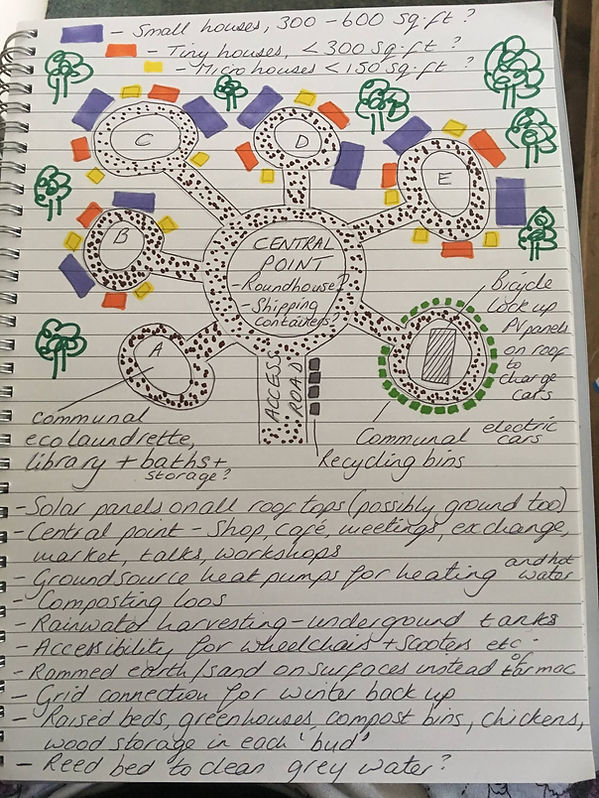 - Small houses, 300-600 sq.ft?
- Tiny houses, <300 sq.ft?
- Micro houses <150 sq.ft?
C
D
E
B
CENTRAL
POINT
- Roundhouse?
- Shipping
containers?
A
Bicycle
lock up
PV panels
on roof
to
charge
cars
ACCESS
ROAD
communal
ecolaundrette,
library + baths +
storage?
Communal electric
cars
Recycling bins
- Solar panels on all rooftops (possibly ground too)
- Central point - Shop, café, meetings, exchange,
market, talks, workshops
- Groundsource heat pumps for heating and hot
water
- Composting loos
- Rainwater harvesting - underground tanks
- Accessibility for wheelchairs + scooters etc.
- Rammed earth/sand on surfaces instead of tarmac
- Grid connection for winter back up
- Raised beds, greenhouses, compost bins, chickens,
wood storage in each 'bud'
- Reed bed to clean grey water?